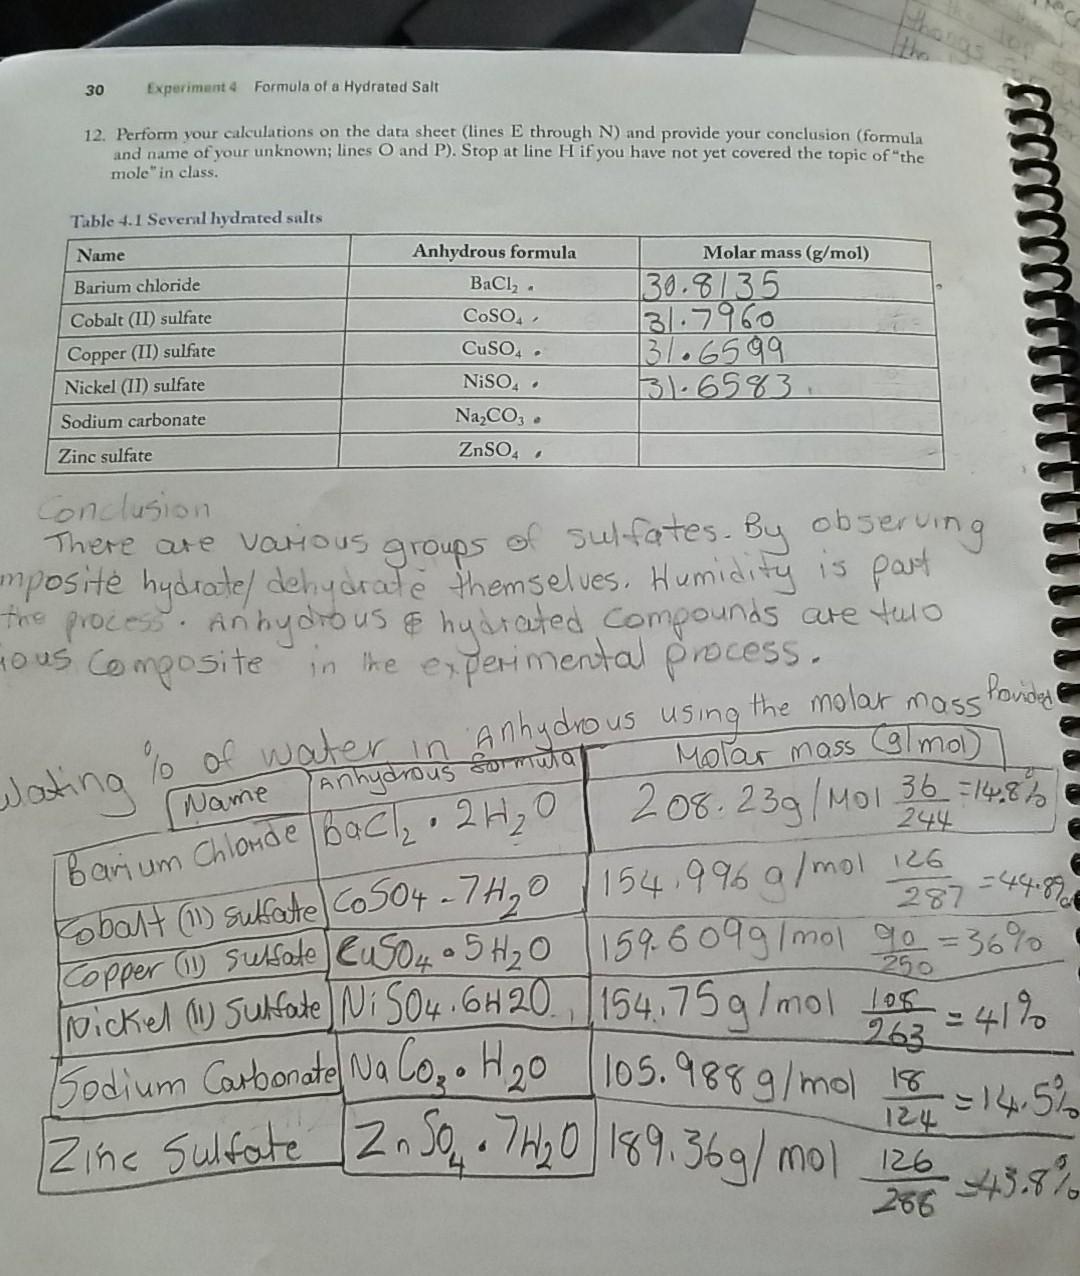 30 Experiment 4 Formula of a Hydrated Salt
12. Perform your calculations on the data sheet (lines E through N) and provide your conclusion (formula
and name of your unknown; lines O and P). Stop at line H if you have not yet covered the topic of "the
mole" in class.
Table 4.1 Several hydrated salts
Name Anhydrous formula Molar mass (g/mol)
Barium chloride BaCl₂ . 30.8135
Cobalt (II) sulfate CoSO₄ . 31.7960
Copper (II) sulfate CuSO₄ . 31.6599
Nickel (II) sulfate NiSO₄ . 31.6583
Sodium carbonate Na₂CO₃ .
Zinc sulfate ZnSO₄ .
Conclusion
There are various groups of sulfates. By observing
mposite hydrate/dehydrate themselves. Humidity is part
the process. Anhydrous & hydrated compounds are two
ious composite in the experimental process.
lating % of water in Anhydrous using the molar mass Provided
Name Anhydrous formula Molar mass (g/mol)
Barium Chloride BaCl₂ . 2H₂O 208.23g/Mol 36/244 = 14.8%
Cobalt (II) sulfate CoSO4 . 7H₂O 154.996 g/mol 126/287 = 44.8%
Copper (II) sulfate CuSO₄ . 5H₂O 159.609g/mol 90/250 = 36%
Nickel (II) Sulfate NiSO4 . 6H2O 154.75g/mol 108/263 = 41%
Sodium Carbonate NaCo₃ . H₂O 105.988g/mol 18/124 = 14.5%
Zinc Sulfate ZnSO₄ . 7H₂O 189.36g/mol 126/288 = 43.8%